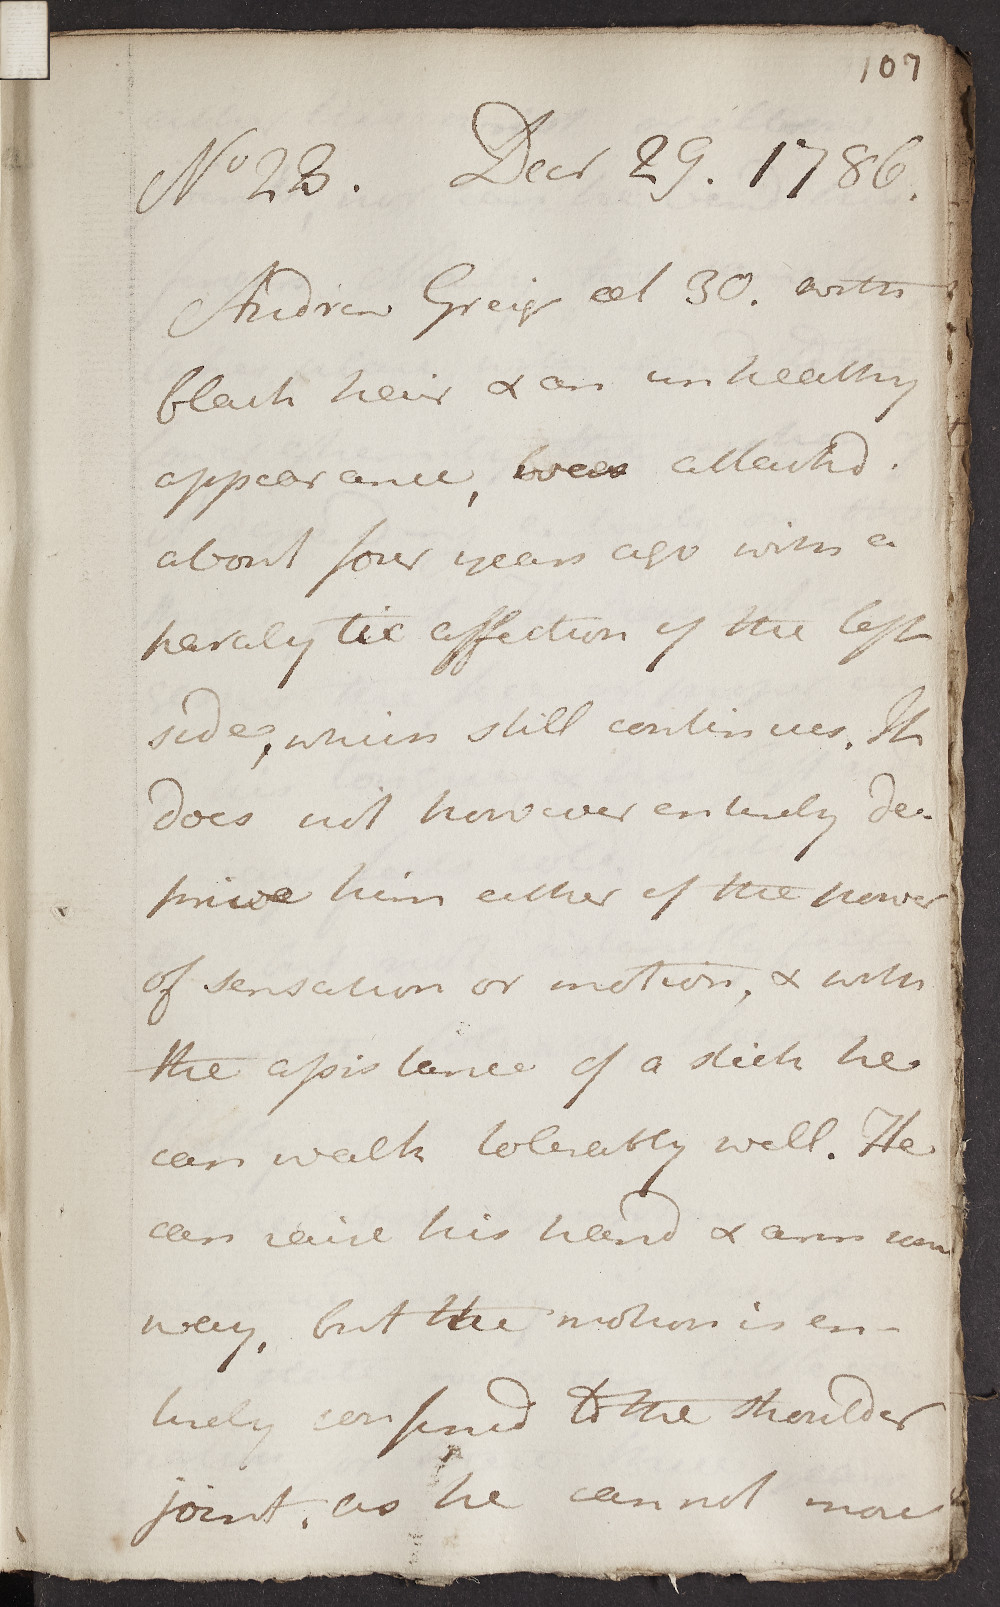 107
No 23. Decr 29. 1786.
Andrew Greig aet 30. with
black hair & an unhealthy
appearance, was attackd.
about four years ago with a
paralytic affection of the left
side, which still continues. It
does not however entirely de-
prive him either of the power
of sensation or motion, & with
the assistance of a stick he
can walk tolerably well. He
can raise his hand & arm
way, but the motion is en-
tirely confined to the shoulder
joint, as he cannot move